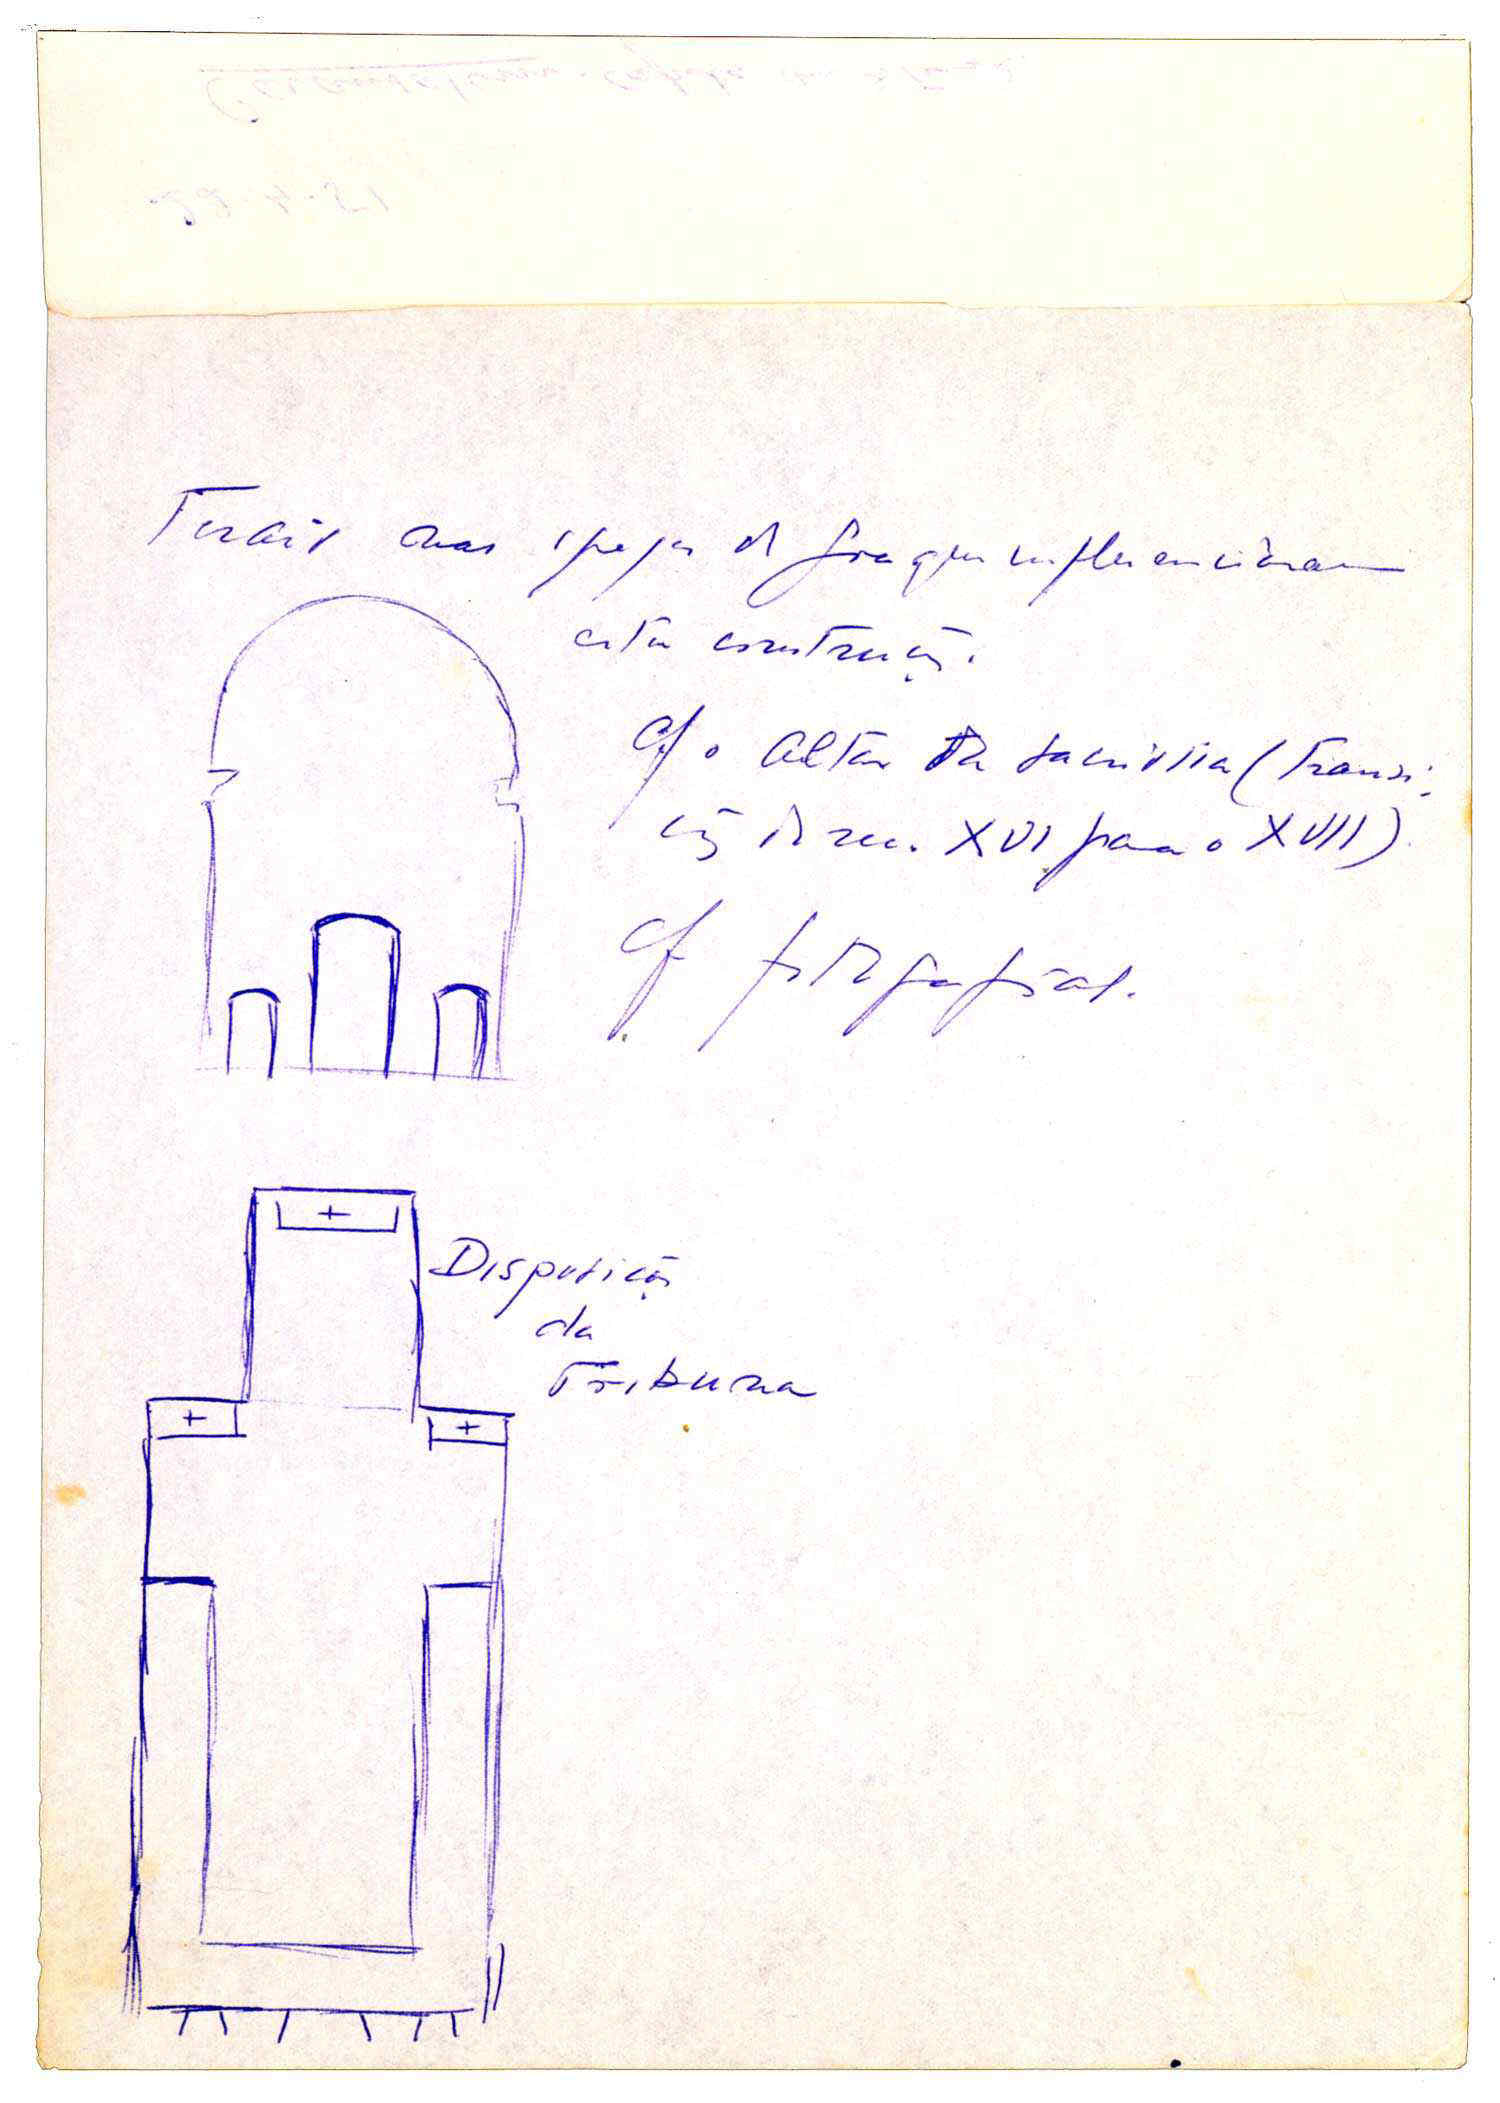 Terão nas igrejas de Goa que influenciaram
esta construção.
cf o altar da sacristia (transi-
ção do sec. XVI para o XVII)
cf fotografias.
Disposição
da
Tribuna